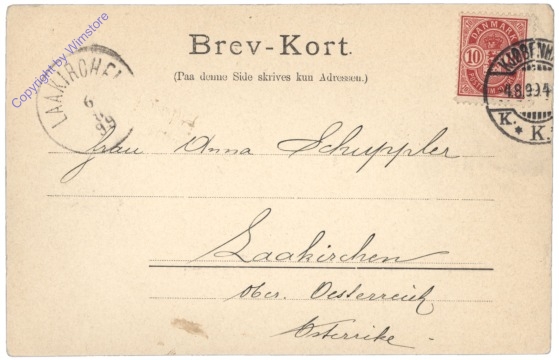 Brev-Kort.
(Paa denne Side skrives kun Adressen.)
DANMARK
10
KJØBENHA
4.8.99 4
K. * K.
LAAKIRCHE
6
99
Copyright by Wimstore
Frau Anna Schuppler
Laakirchen
Ober. Oesterreich
Østerrike